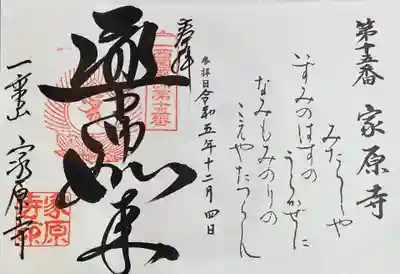 第十五番 家原寺
みたらしや
いずみのはすの
うらかぜに
なみもみのりの
こえやたつらん
参拝日令和五年十二月四日
奉拝
第十五番
薬師如来
一乗山 家原寺
家原寺印